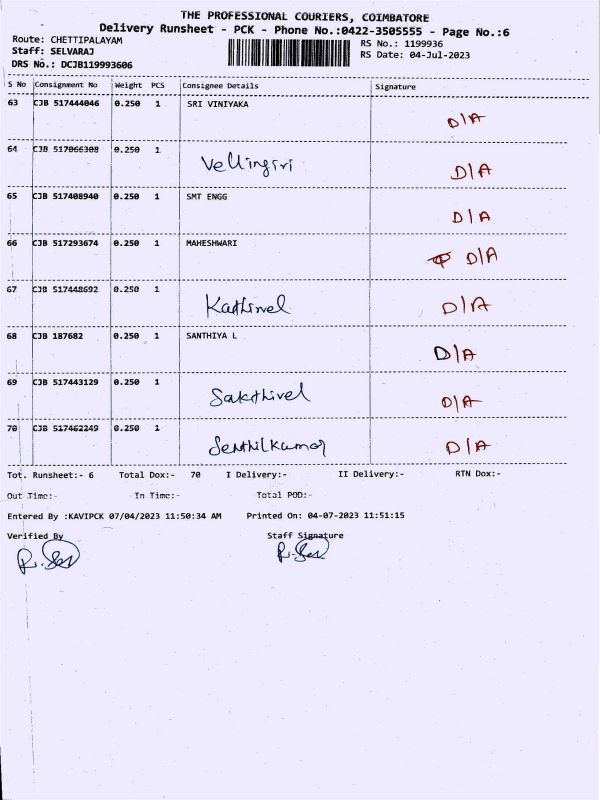 THE PROFESSIONAL COURIERS, COIMBATORE
Delivery Runsheet - PCK - Phone No.:0422-3505555 - Page No.:6
Route: CHETTIPALAYAM
RS No.: 1199936
Staff: SELVARAJ
RS Date: 04-Jul-2023
DRS No.: DCJB119993606
S No Consignment No Weight PCS Consignee Details Signature
63 CJB 517444046 0.250 1 SRI VINIYAKA D/A
64 CJB 517066308 0.250 1 Vellingiri D/A
65 CJB 517408940 0.250 1 SMT ENGG D/A
66 CJB 517293674 0.250 1 MAHESHWARI D/A
67 CJB 517448692 0.250 1 Kathirvel D/A
68 CJB 187682 0.250 1 SANTHIYA L D/A
69 CJB 517443129 0.250 1 Sakthivel D/A
70 CJB 517462249 0.250 1 Senthilkumar D/A
Tot. Runsheet:- 6 Total Dox:- 70 I Delivery:- II Delivery:- RTN Dox:-
Out Time:- In Time:- Total POD:-
Entered By :KAVIPCK 07/04/2023 11:50:34 AM Printed On: 04-07-2023 11:51:15
Verified By Staff Signature